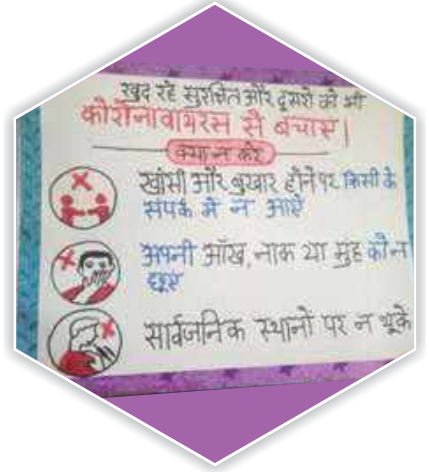 खुद रहे सुरक्षित और दूसरो को भी
कोरोनावायरस से बचाए।
क्या न करे
खांसी और बुखार होने पर किसी के
संपर्क मे न आऐं
अपनी आँख, नाक या मुंह को न
छुए
सार्वजनिक स्थानो पर न थूके